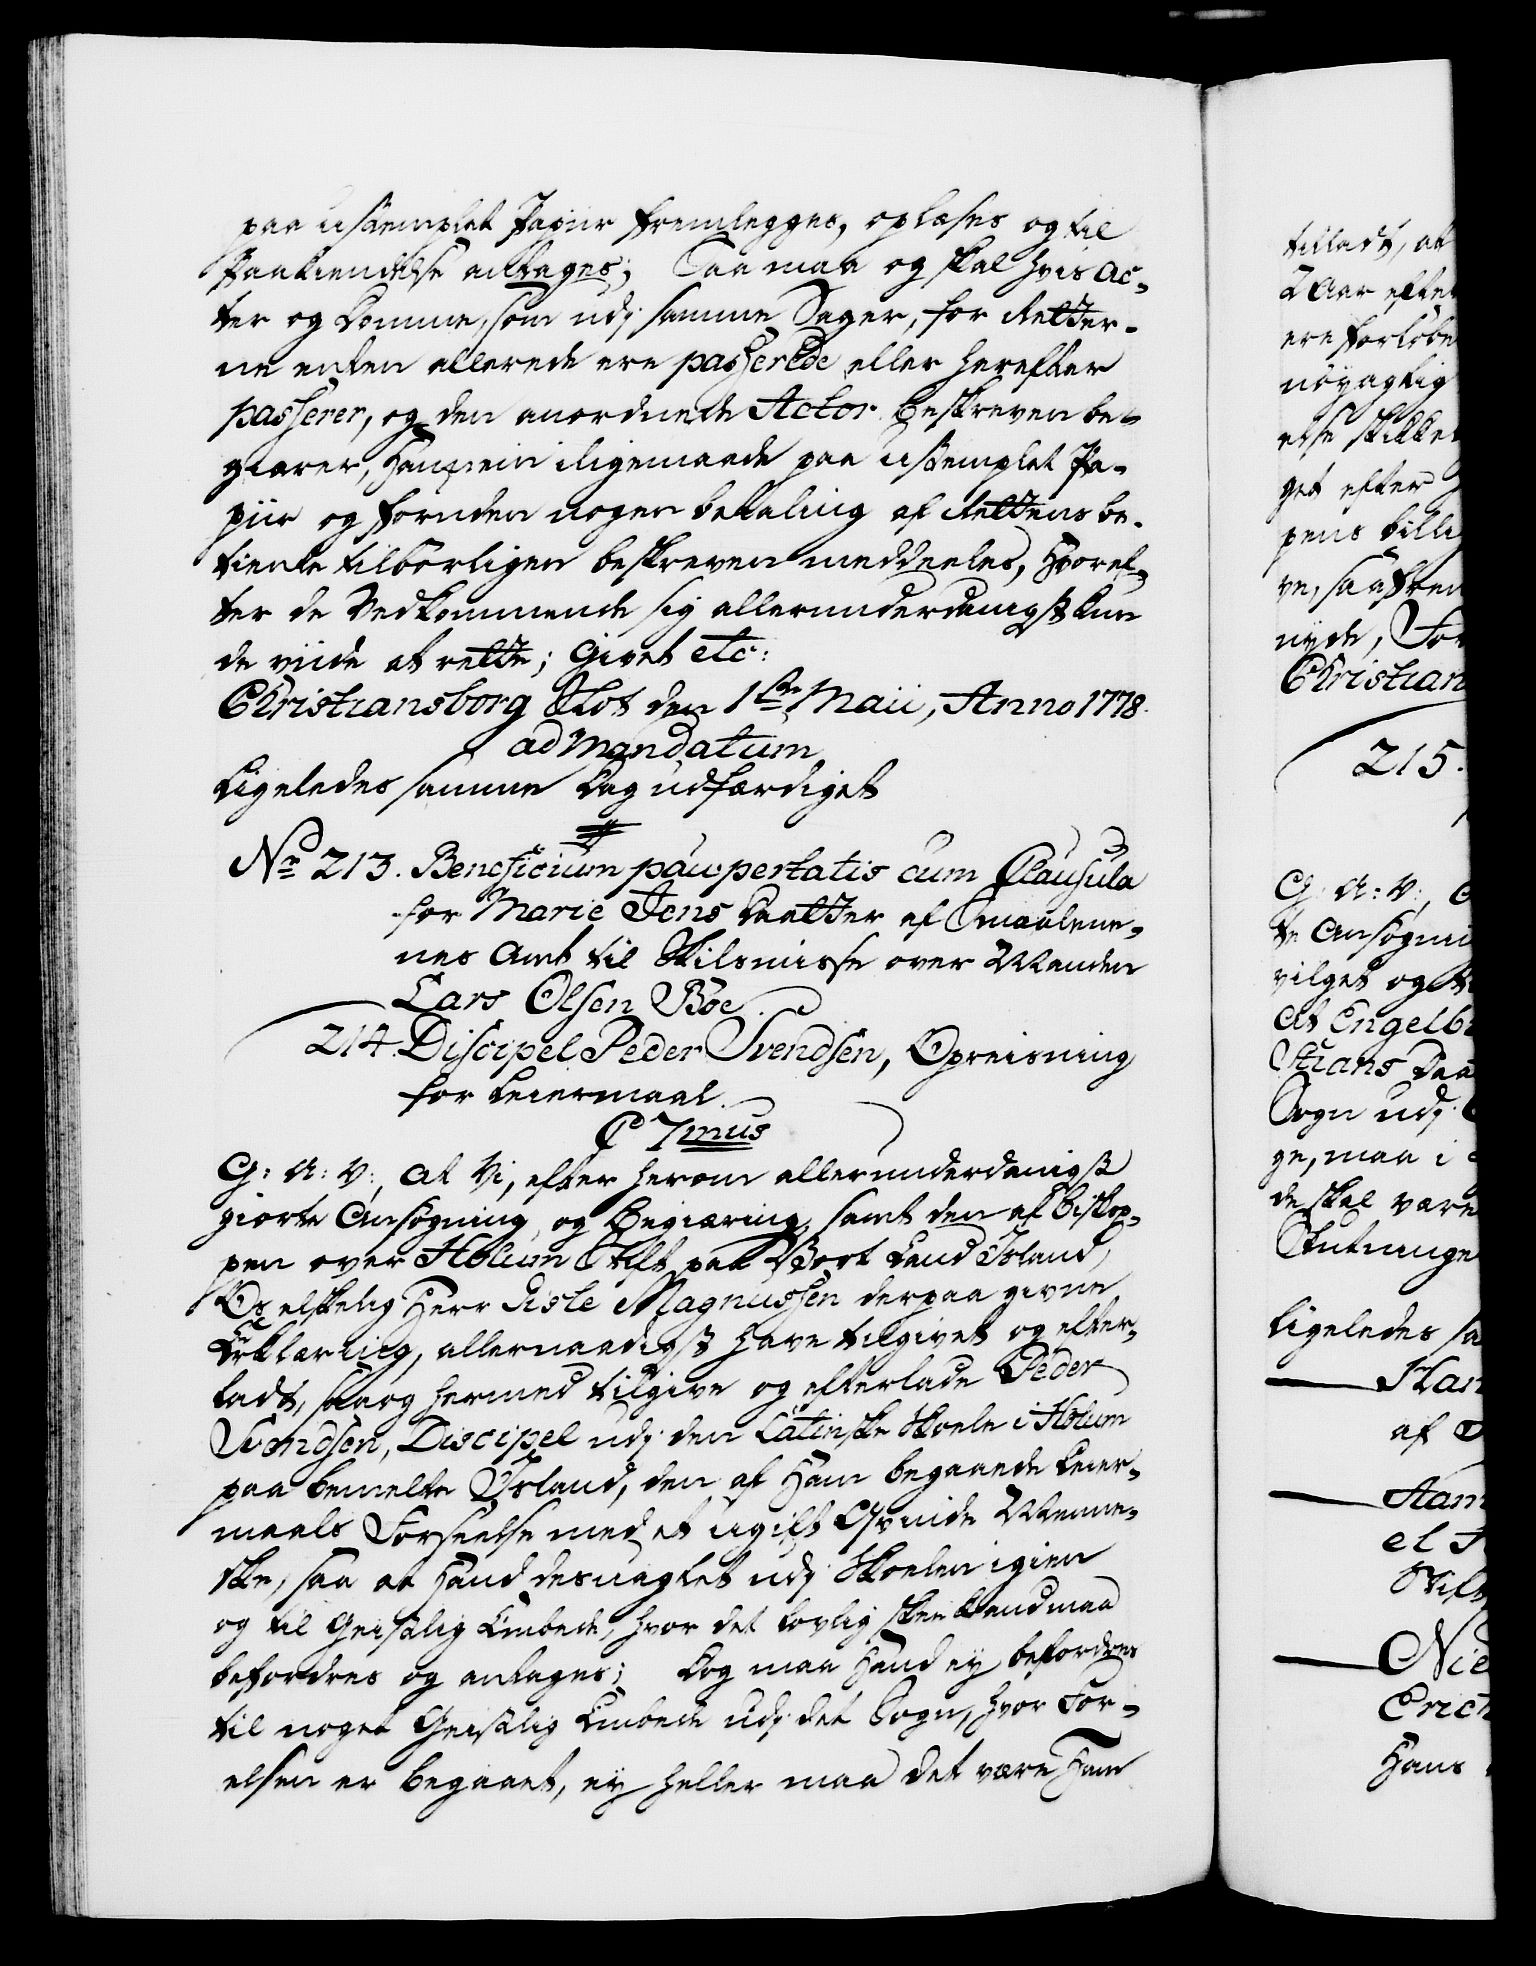 paa ustemplet Papiir fremlegges, oplæses og til
Paakiendelse antages; Saa maa og skal hvis Ac-
ter og Domme, som udj samme Sager, for Retter-
ne enten allerede ere passerede eller herefter
passerer, og den anordnede Actor beskreven be-
giærer, Ham ligemaade paa ustemplet Pa-
piir og foruden nogen betaling af Rettens be-
tiente tilbørligen beskreven meddeeles, Hvoref-
ter de Vedkommende sig allerunderdanigst kun
de viide at rette; Givet etc:
Christiansborg Slot den 1ste Maii, Anno 1778.
ad Mandatum
Ligeledes samme Dag udfærdiget
No 213. Beneficium paupertatis cum Clausula
for Marie Jens Daatter af Smaalene-
nes Amt til Skilsmisse over Manden
Lars Olsen Böe.
214. Discipel Peder Svendsen, Opreisning
for Leiermaal.
C 7mus
G: A: V:, At Vi, efter herom allerunderdanigst
giorte Ansøgning og Begiæring, samt den af Biskop-
pen over Holum Stift paa Vort Land Island,
Os elskelig Herr Gisle Magnussen derpaa givne
Erklæring, allernaadigst have tilgivet og efter-
ladt, saa og hermed tilgive og efterlade Peder
Svendsen, Discipel udj den Latinske Skoele i Holum
paa bemelte Island, den af Ham begaaede Leier-
maals Forseelse med et ugift Qvinde Menne-
ske, saa at Hand desuagtet udj Skoelen igien
og til Geistlig Embede, hvor det lovlig skee kand maa
befordres og antages; Dog maa Hand ey befordres
til noget Geistlig Embede udj det Sogn, hvor For-
elsen er begaaet, ey heller maa det være Ham
tilladt, at
2 Aar efter
ere forløbe
nøyagtig
else skikke
get efter
pens billi
ve, saafrem
nyde, For
Christian
215.
G: A: V:,
te Ansøgni
vilget og
At Engelb
Stians Daa
Sogn udj
ge, maa i
de skal være
Slutninge
Ligeledes sa
Han
af
Ham
el
Stift
Nie
Erich
Hans